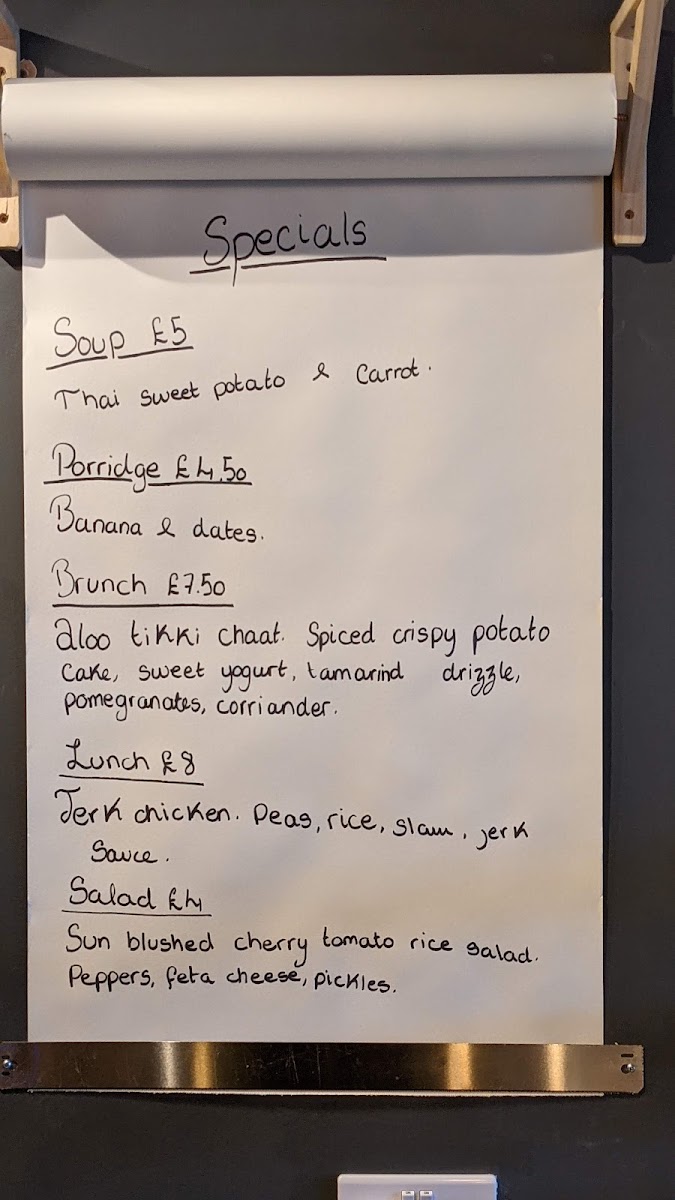 Specials
Soup £5
Thai sweet potato & Carrot.
Porridge £4.50
Banana & dates.
Brunch £7.50
aloo tikki chaat. Spiced crispy potato
Cake, sweet yogurt, tamarind drizzle,
pomegranates, corriander.
Lunch £8
Jerk chicken. Peas, rice, slaw, jerk
Sauce.
Salad £4
Sun blushed cherry tomato rice salad.
Peppers, feta cheese, pickles.